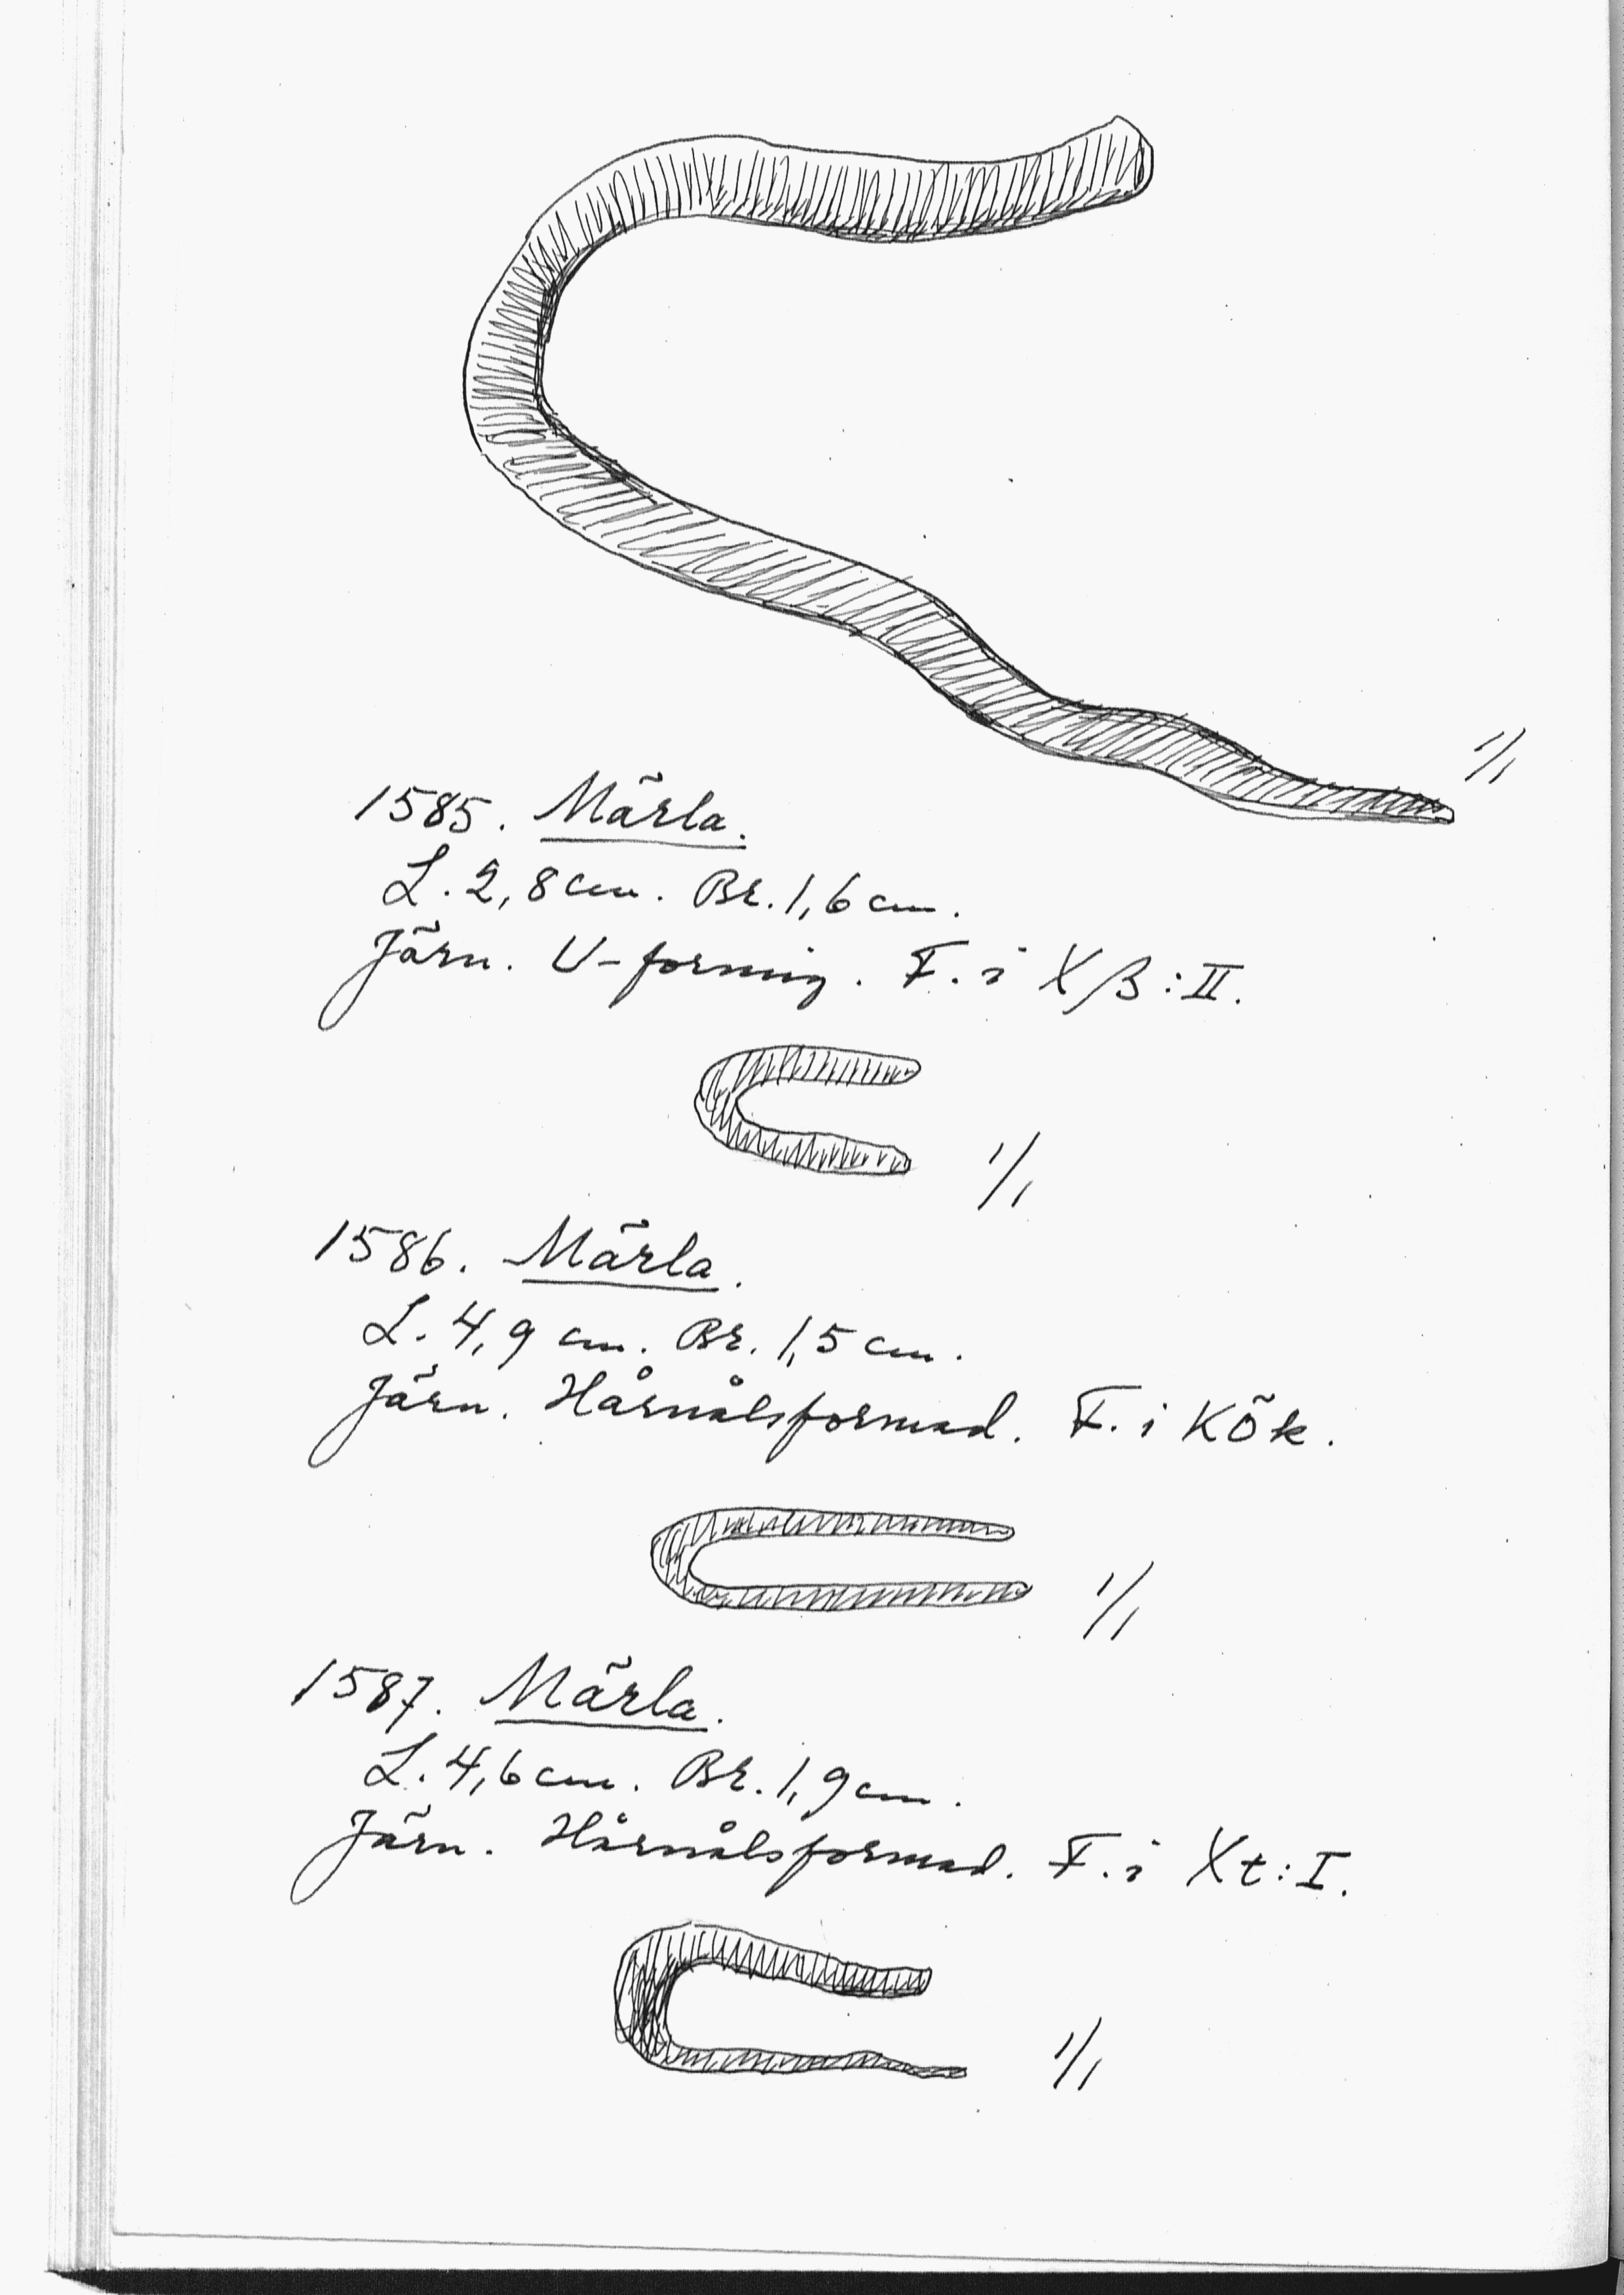 1/1
1585. Märla.
L. 2,8 cm. Br. 1,6 cm.
Järn. U-formig. F. i Xβ:II.
1/1
1586. Märla.
L. 4,9 cm. Br. 1,5 cm.
Järn. Hårnålsformad. F. i Kök.
1/1
1587. Märla.
L. 4,6 cm. Br. 1,9 cm.
Järn. Hårnålsformad. F. i Xt:I.
1/1